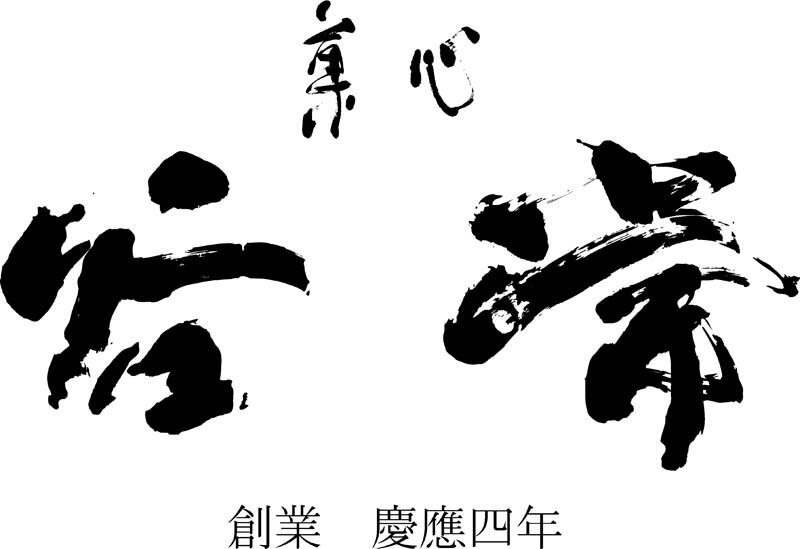 菓心
谷常
創業　慶應四年